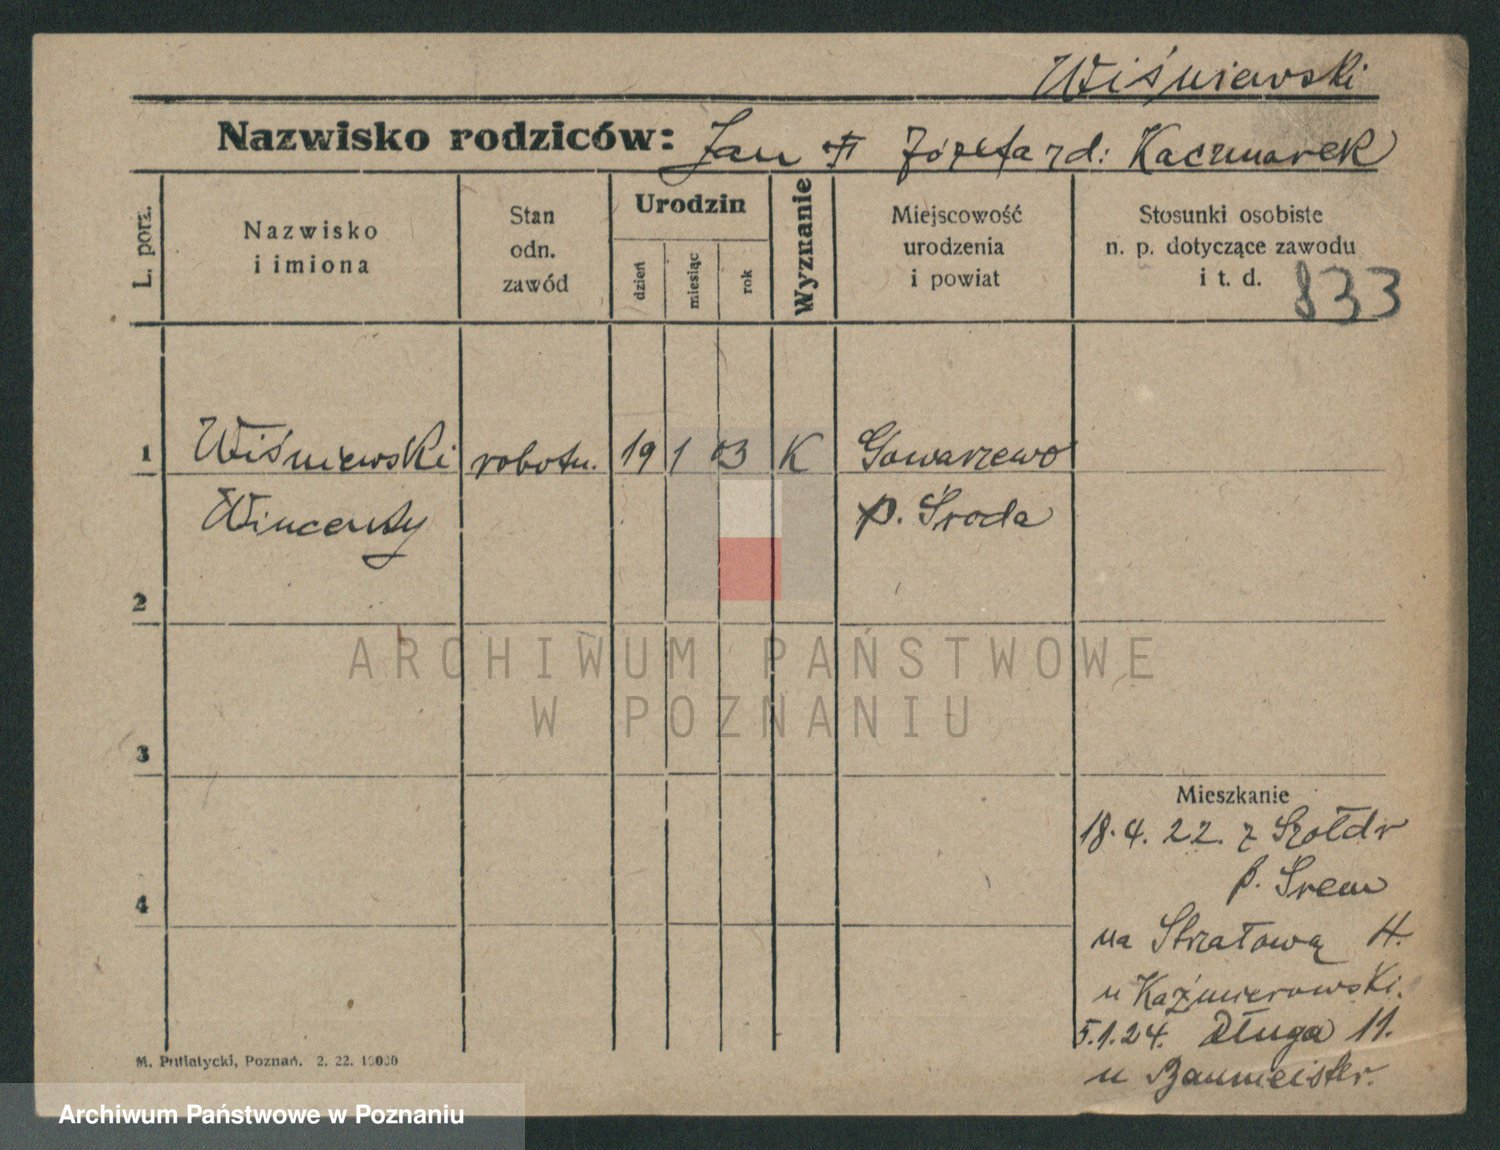 Wiśniewski
Nazwisko rodziców: Jan † Józefa zd: Kaczmarek
L. porz.
Nazwisko
i imiona
Stan
odn.
zawód
Urodzin
dzień
miesiąc
rok
Wyznanie
Miejscowość
urodzenia
i powiat
Stosunki osobiste
n. p. dotyczące zawodu
i t. d.
833
1 Wiśniewski robotn. 19 1 03 K Gowarzewo
Wincenty p. Środa
2
ARCHIWUM PAŃSTWOWE
W POZNANIU
3
Mieszkanie
18.4.22. z Szołdr
p. Śrem
4
na Strzałową 4.
u Kaźmierowski.
5.1.24. Długa 11.
u Baumeister.
M. Putiatycki, Poznań. 2. 22. 10000
Archiwum Państwowe w Poznaniu